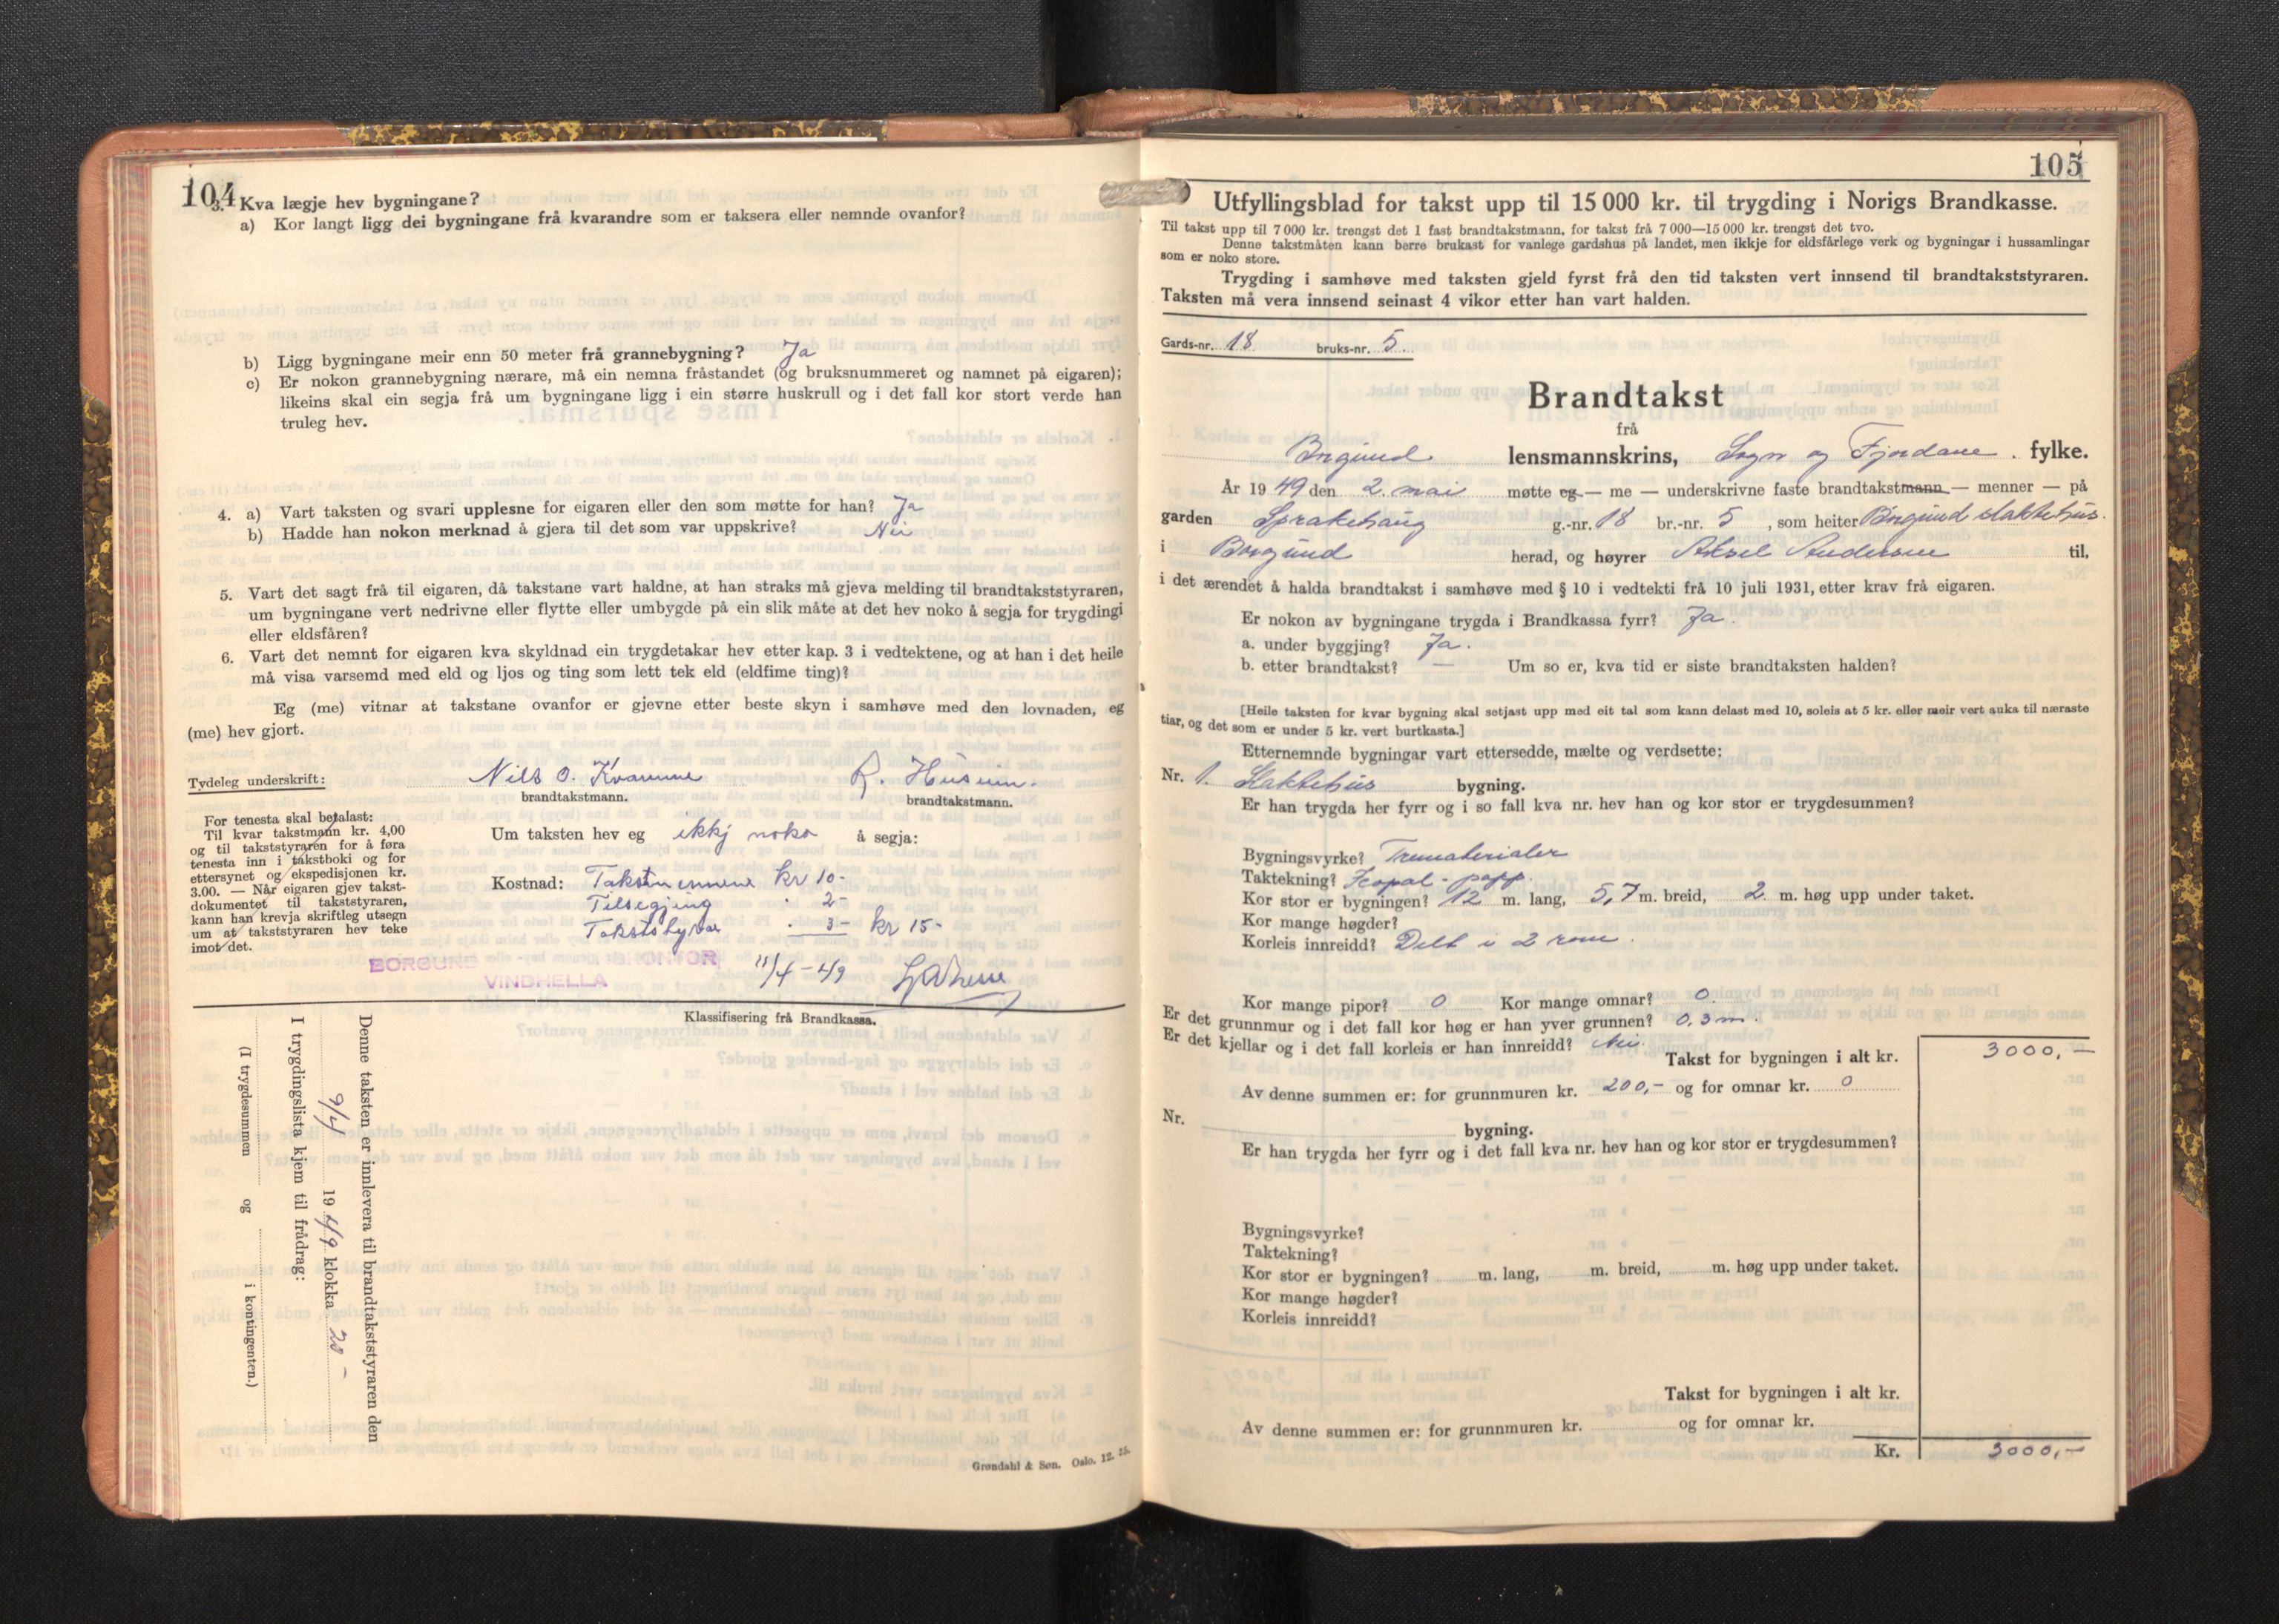 104
3. Kva lægje hev bygningane?
a) Kor langt ligg dei bygningane frå kvarandre som er taksera eller nemnde ovanfor?
b) Ligg bygningane meir enn 50 meter frå grannebygning? Ja
c) Er nokon grannebygning nærare, må ein nemna fråstandet (og bruksnummeret og namnet på eigaren);
likeins skal ein segja frå um bygningane ligg i ein større huskrull og i det fall kor stort verde han
truleg hev.
4. a) Vart taksten og svari upplesne for eigaren eller den som møtte for han? Ja
b) Hadde han nokon merknad å gjera til det som var uppskrive? Nei
5. Vart det sagt frå til eigaren, då takstane vart haldne, at han straks må gjeva melding til brandtakststyraren,
um bygningane vert nedrivne eller flytte eller umbygde på ein slik måte at det hev noko å segja for trygdingi
eller eldsfåren?
6. Vart det nemnt for eigaren kva skyldnad ein trygdetakar hev etter kap. 3 i vedtektene, og at han i det heile
må visa varsemd med eld og ljos og ting som lett tek eld (eldfime ting)?
Eg (me) vitnar at takstane ovanfor er gjevne etter beste skyn i samhøve med den lovnaden, eg
(me) hev gjort.
Tydeleg underskrift: Nils O. Kvamme R. Husum.
brandtakstmann. brandtakstmann.
For tenesta skal betalast:
Til kvar takstmann kr. 4,00
og til takststyraren for å føra
tenesta inn i takstboki og for
ettersynet og ekspedisjonen kr.
3.00. — Når eigaren gjev takst-
dokumentet til takststyraren,
kann han krevja skriftleg utsegn
um at takststyraren hev teke
imot det.
Um taksten hev eg ikkj noko å segja:
Kostnad: Takstmennene kr 10-
Tilsegjing " 2-
Takststyrar " 3- kr 15-
BORGUND
VINDHELLA
11/4-49
Klassifisering frå Brandkassa.
Denne taksten er innlevera til brandtakststyraren den
9/4 1949 klokka 20 -
I trygdingslista kjem til frådrag:
(I trygdesummen og i kontingenten.)
Grøndahl & Søn. Oslo. 12. 35.
105
Utfyllingsblad for takst upp til 15 000 kr. til trygding i Norigs Brandkasse.
Til takst upp til 7 000 kr. trengst det 1 fast brandtakstmann, for takst frå 7 000—15 000 kr. trengst det tvo.
Denne takstmåten kann berre brukast for vanlege gardshus på landet, men ikkje for eldsfårlege verk og bygningar i hussamlingar
som er noko store.
Trygding i samhøve med taksten gjeld fyrst frå den tid taksten vert innsend til brandtakststyraren.
Taksten må vera innsend seinast 4 vikor etter han vart halden.
Gards-nr. 18 bruks-nr. 5
Brandtakst
frå
Borgund lensmannskrins, Sogn og Fjordane fylke.
År 1949 den 2. mai møtte eg — me — underskrivne faste brandtakstmann — menner — på
garden Sprakehaug g.-nr. 18 br.-nr. 5, som heiter Borgund slaktehus.
i Borgund herad, og høyrer Aksel Andersen til,
i det ærendet å halda brandtakst i samhøve med § 10 i vedtekti frå 10 juli 1931, etter krav frå eigaren.
Er nokon av bygningane trygda i Brandkassa fyrr? Ja.
a. under byggjing? Ja.
b. etter brandtakst? — Um so er, kva tid er siste brandtaksten halden?
[Heile taksten for kvar bygning skal setjast upp med eit tal som kann delast med 10, soleis at 5 kr. eller meir vert auka til næraste
tiar, og det som er under 5 kr. vert burtkasta.]
Etternemnde bygningar vart ettersedde, mælte og verdsette:
Nr. 1. Slaktehus bygning.
Er han trygda her fyrr og i so fall kva nr. hev han og kor stor er trygdesummen?
Bygningsvyrke? Trematerialer
Taktekning? Icopal-papp.
Kor stor er bygningen? 12 m. lang, 5,7 m. breid, 2 m. høg upp under taket.
Kor mange høgder?
Korleis innreidd? Delt i 2 rom.
Kor mange pipor? 0 Kor mange omnar? 0.
Er det grunnmur og i det fall kor høg er han yver grunnen? 0,3 m.
Er det kjellar og i det fall korleis er han innreidd? Nei
Takst for bygningen i alt kr. 3000,-
Av denne summen er: for grunnmuren kr. 200,- og for omnar kr. 0
Nr. bygning.
Er han trygda her fyrr og i det fall kva nr. hev han og kor stor er trygdesummen?
Bygningsvyrke?
Taktekning?
Kor stor er bygningen? m. lang, m. breid, m. høg upp under taket.
Kor mange høgder?
Korleis innreidd?
Takst for bygningen i alt kr.
Av denne summen er: for grunnmuren kr. og for omnar kr.
Kr. 3000,-